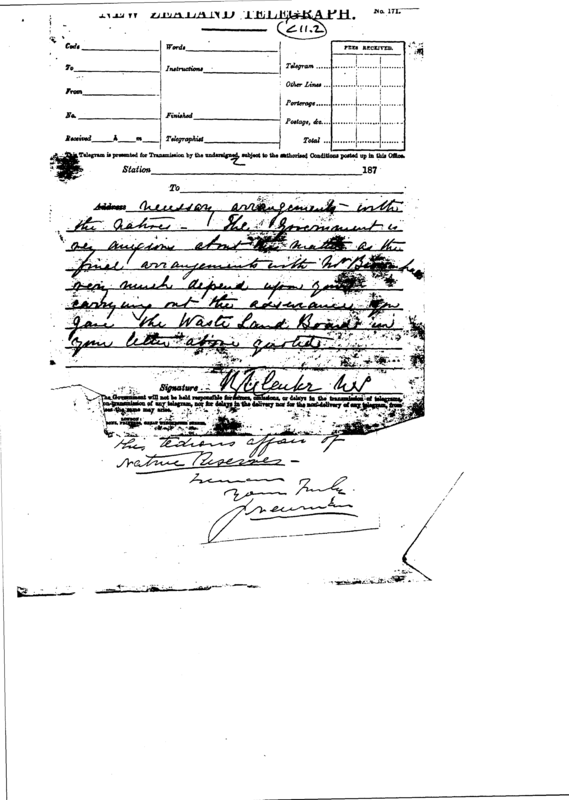 NEW ZEALAND TELEGRAPH.
No. 171.
C11.2
FEES RECEIVED.
Code Words
Telegram
To Instructions
Other Lines
From
Porterage
No. Finished
Postage, &c.
Received h m Telegraphist
Total
This Telegram is presented for Transmission by the undersigned, subject to the authorised Conditions posted up in this Office.
2
Station 187
To
Address necessary arrangements with
the natives - The Government is
very anxious about this matter as the
final arrangements with Mr
very much depend upon your
carrying out the assurance you
gave the Waste Land Board in
your letter above quoted
Signature
The Government will not be held responsible for errors, omissions, or delays in the transmission of telegrams,
non-transmission of any telegram, nor for delays in the delivery nor for the non-delivery of any telegram, from
the same may arise.
LONDON:
this tedious affair of
Native Reserves -
Yours truly